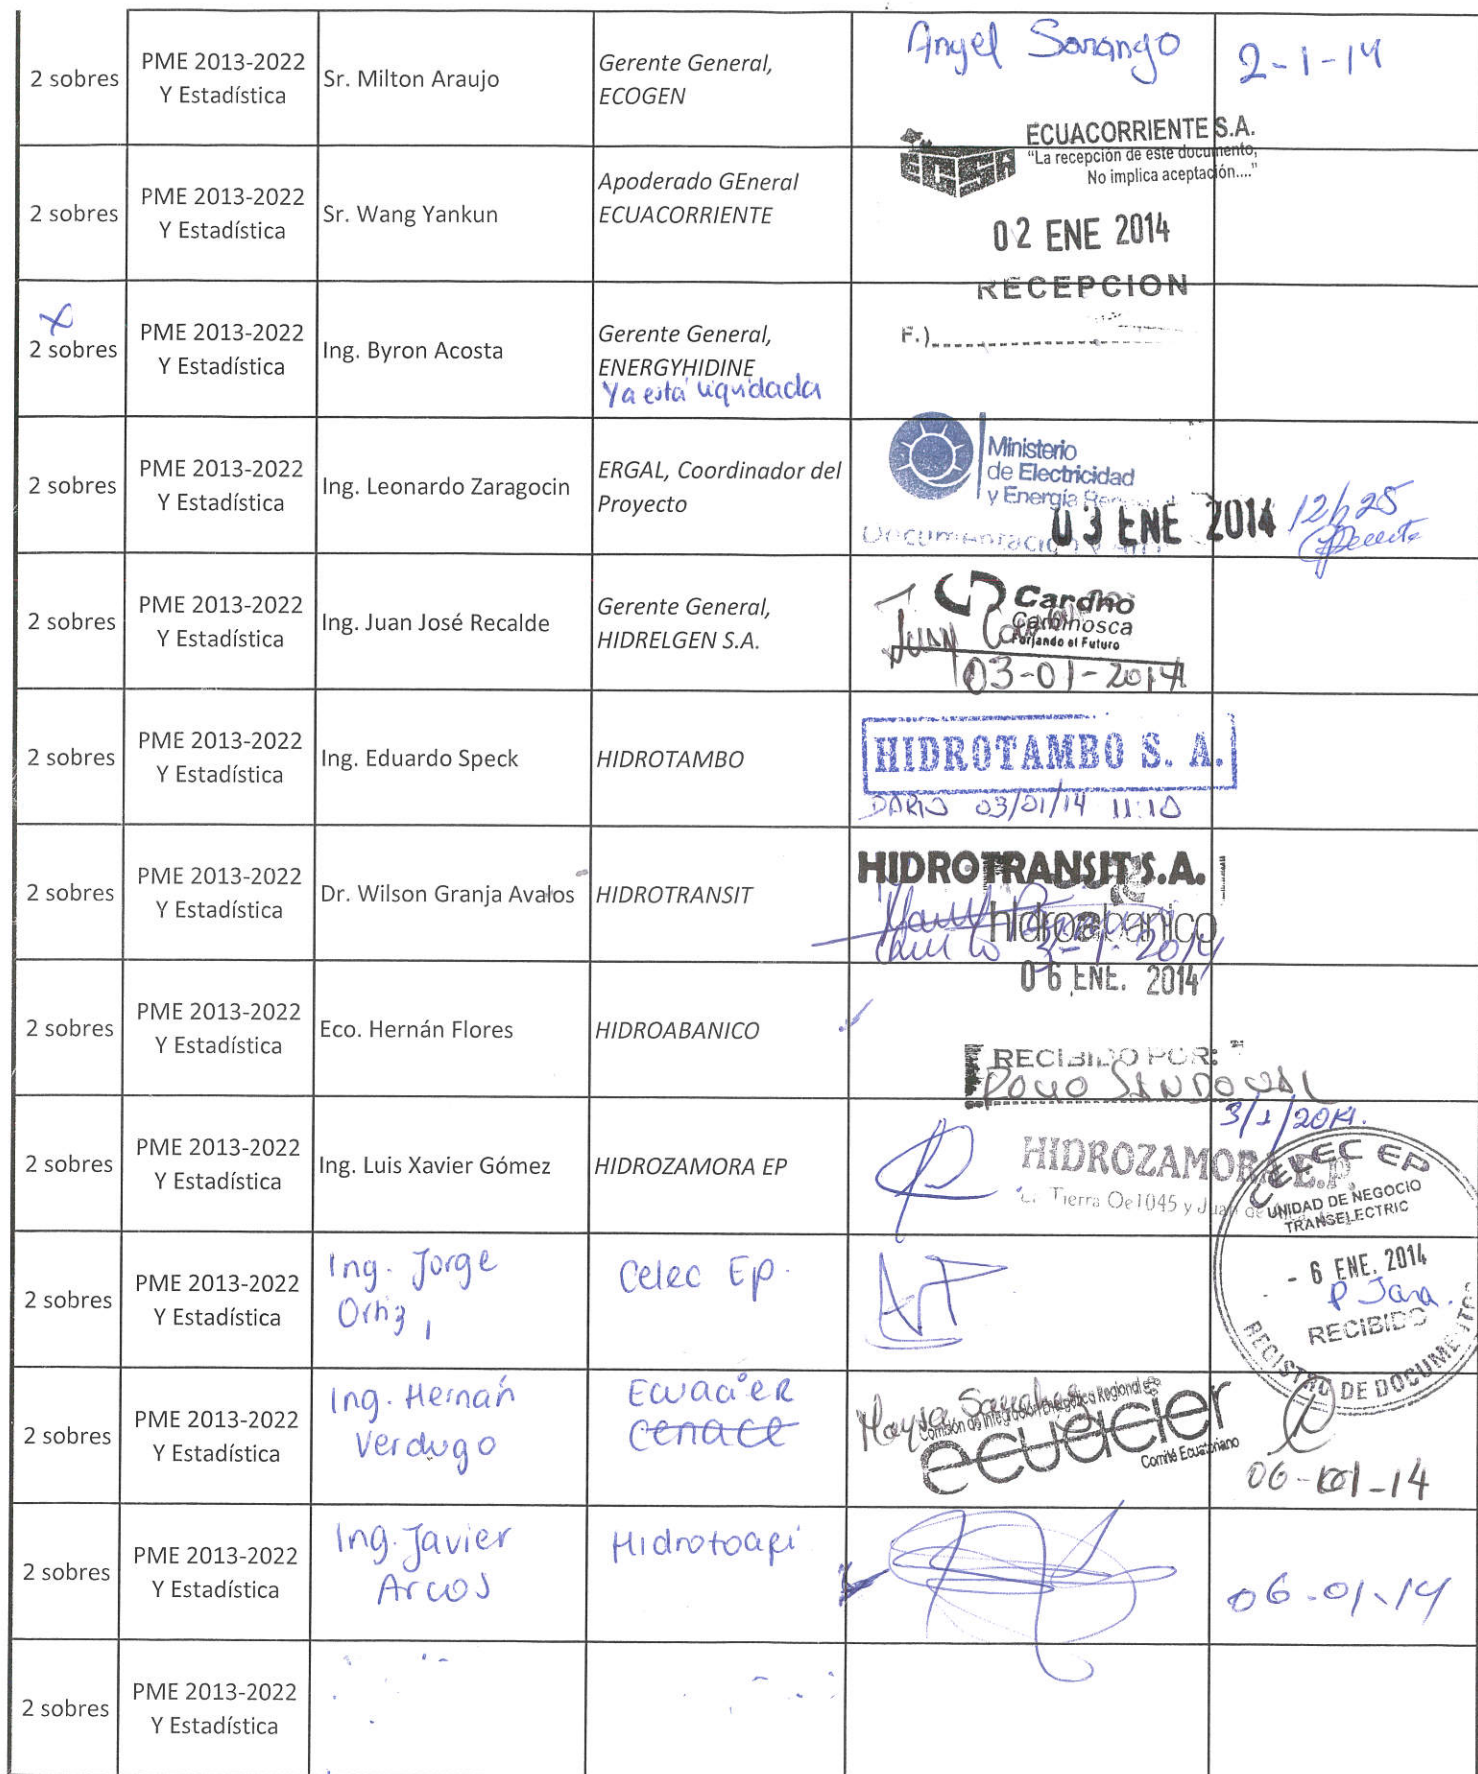 2 sobres
PME 2013-2022
Y Estadística
Sr. Milton Araujo
Gerente General,
ECOGEN
Angel Sarango
2-1-14
2 sobres
PME 2013-2022
Y Estadística
Sr. Wang Yankun
Apoderado GEneral
ECUACORRIENTE
ECSA
ECUACORRIENTE S.A.
"La recepción de este documento,
No implica aceptación...."
02 ENE 2014
RECEPCION
F.)
2 sobres
PME 2013-2022
Y Estadística
Ing. Byron Acosta
Gerente General,
ENERGYHIDINE
Ya está liquidada
2 sobres
PME 2013-2022
Y Estadística
Ing. Leonardo Zaragocin
ERGAL, Coordinador del
Proyecto
Ministerio
de Electricidad
y Energía
03 ENE 2014
12h25
2 sobres
PME 2013-2022
Y Estadística
Ing. Juan José Recalde
Gerente General,
HIDRELGEN S.A.
Cardno
Caminosca
Forjando el Futuro
Juan
03-01-2014
2 sobres
PME 2013-2022
Y Estadística
Ing. Eduardo Speck
HIDROTAMBO
HIDROTAMBO S. A.
DARIO 03/01/14 11:10
2 sobres
PME 2013-2022
Y Estadística
Dr. Wilson Granja Avalos
HIDROTRANSIT
HIDROTRANSIT S.A.
3-1-2014
2 sobres
PME 2013-2022
Y Estadística
Eco. Hernán Flores
HIDROABANICO
hidroabanico
06 ENE. 2014
RECIBIDO POR:
SANDOVAL
2 sobres
PME 2013-2022
Y Estadística
Ing. Luis Xavier Gómez
HIDROZAMORA EP
HIDROZAMORA E.P.
Tierra Oe1045 y Juan de
3/1/2014.
2 sobres
PME 2013-2022
Y Estadística
Ing. Jorge
Ortiz,
Celec Ep.
CELEC EP
UNIDAD DE NEGOCIO
TRANSELECTRIC
- 6 ENE. 2014
P Jara.
RECIBIDO
REGISTRO DE DOCUMENTOS
2 sobres
PME 2013-2022
Y Estadística
Ing. Hernán
Verdugo
Ecuacier
Cenace
Comisión de Integración Energética Regional
ecuacier
Comité Ecuatoriano
06-01-14
2 sobres
PME 2013-2022
Y Estadística
Ing. Javier
Arcos
Hidrotoapi
06-01-14
2 sobres
PME 2013-2022
Y Estadística